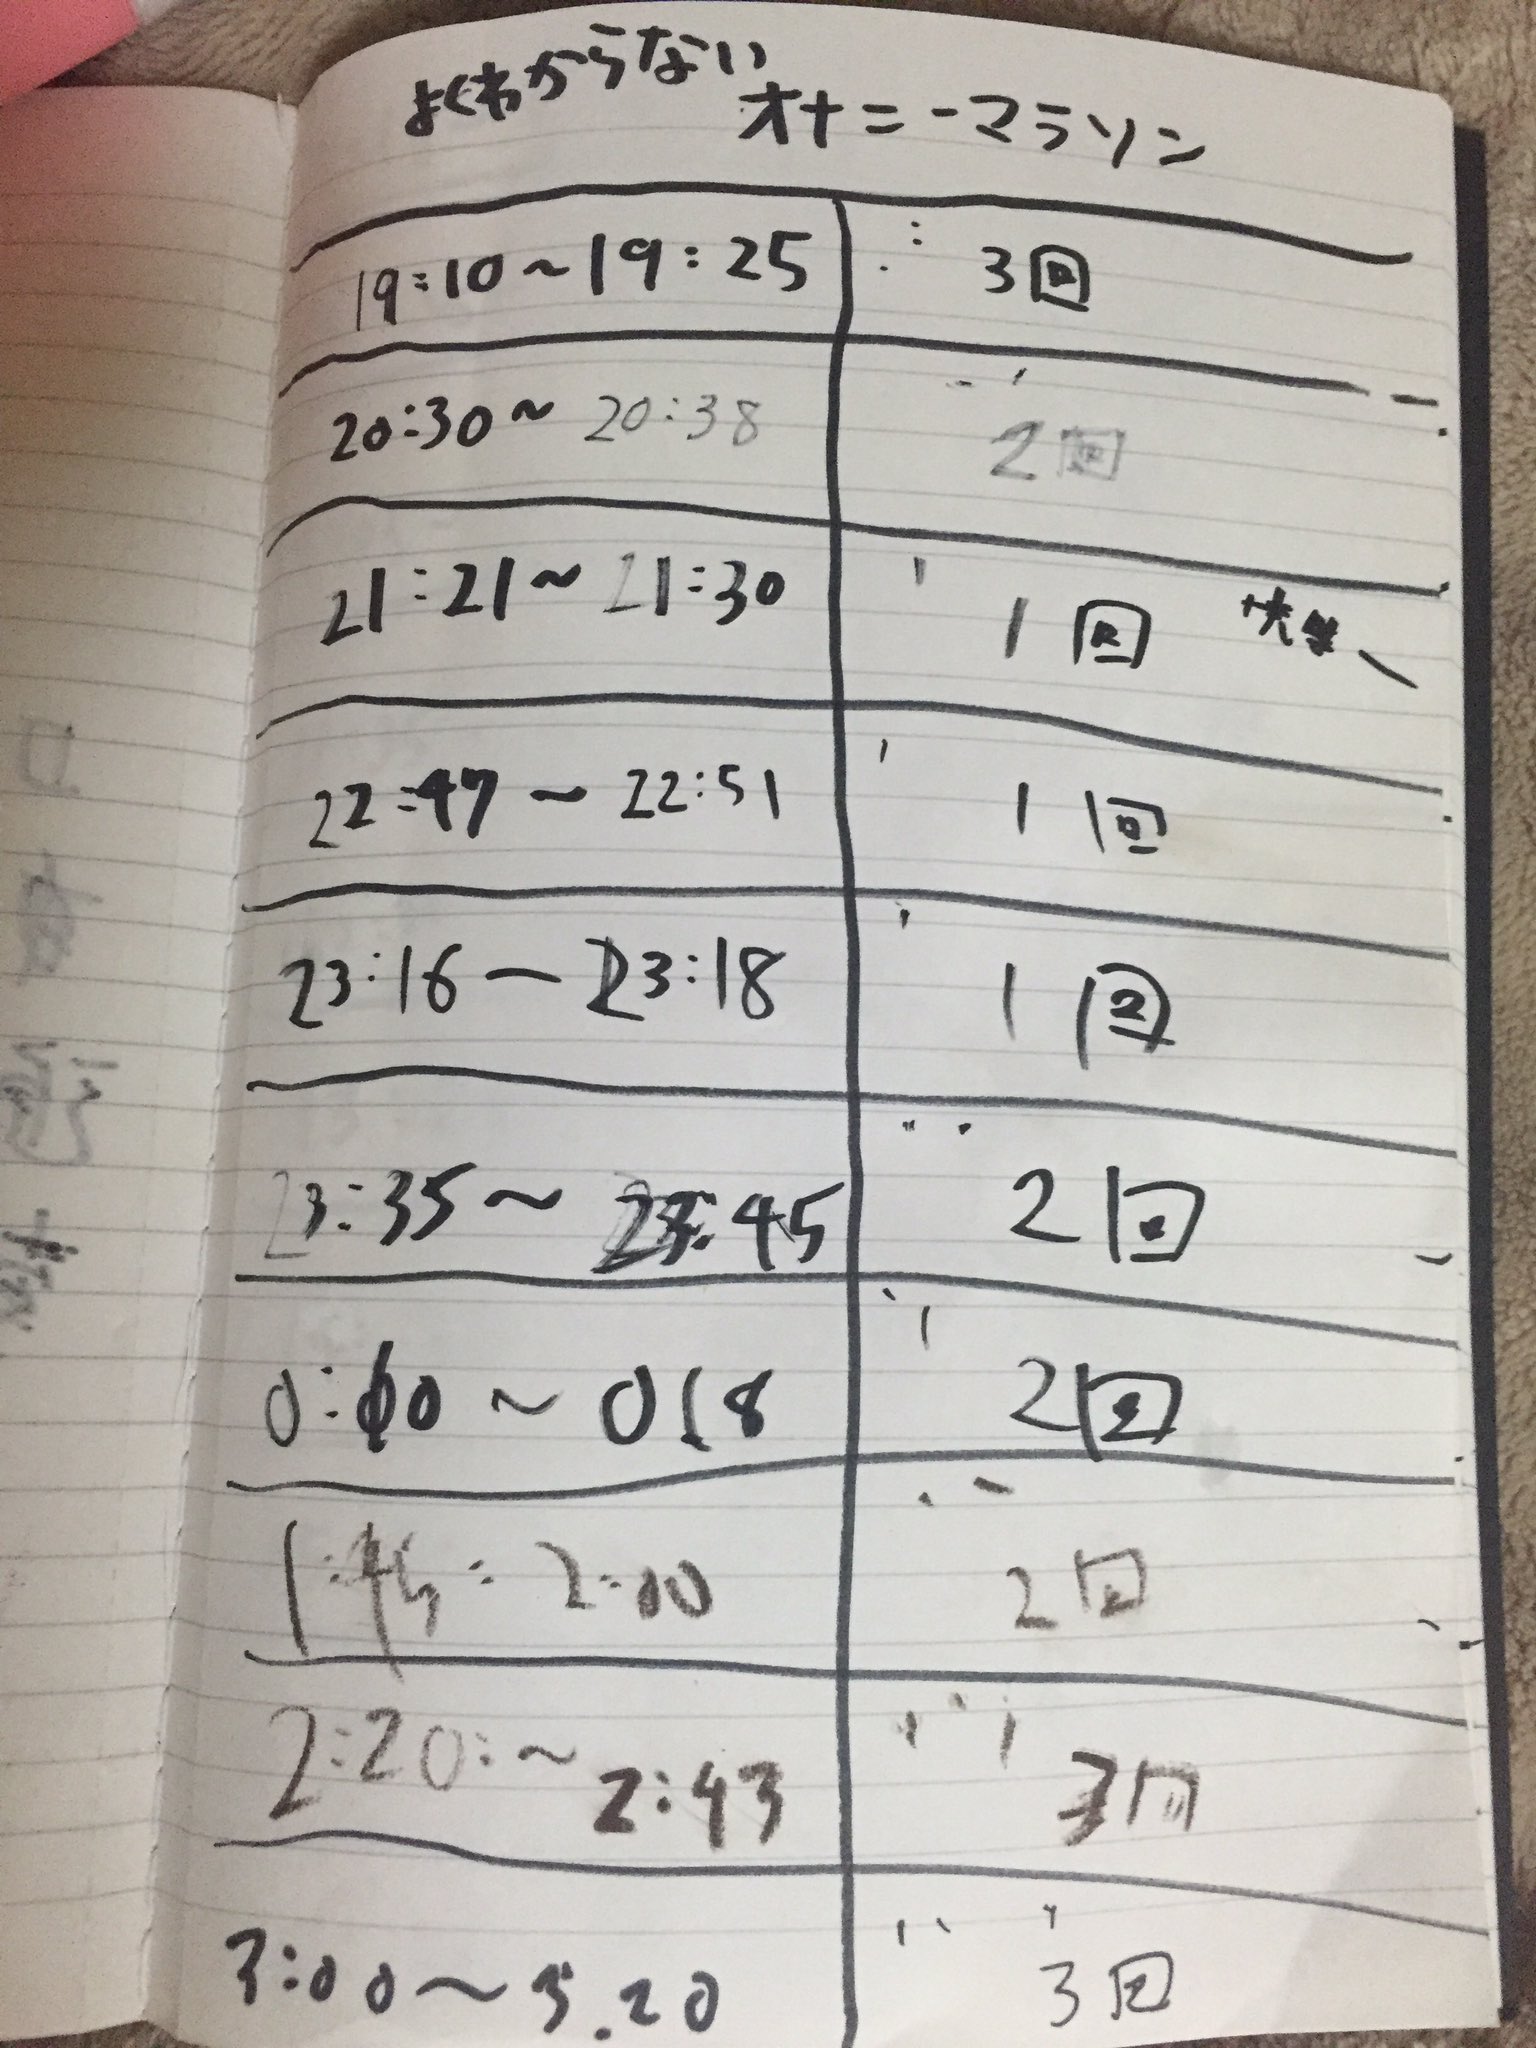 よくわからない
オナニーマラソン
19:10~19:25 3回
20:30~20:38 2回
21:21~21:30 1回
22:47~22:51 1回
23:16~23:18 1回
23:35~23:45 2回
0:10~018 2回
1:45:2:00 2回
2:20:~2:43 3回
3:00~3.20 3回